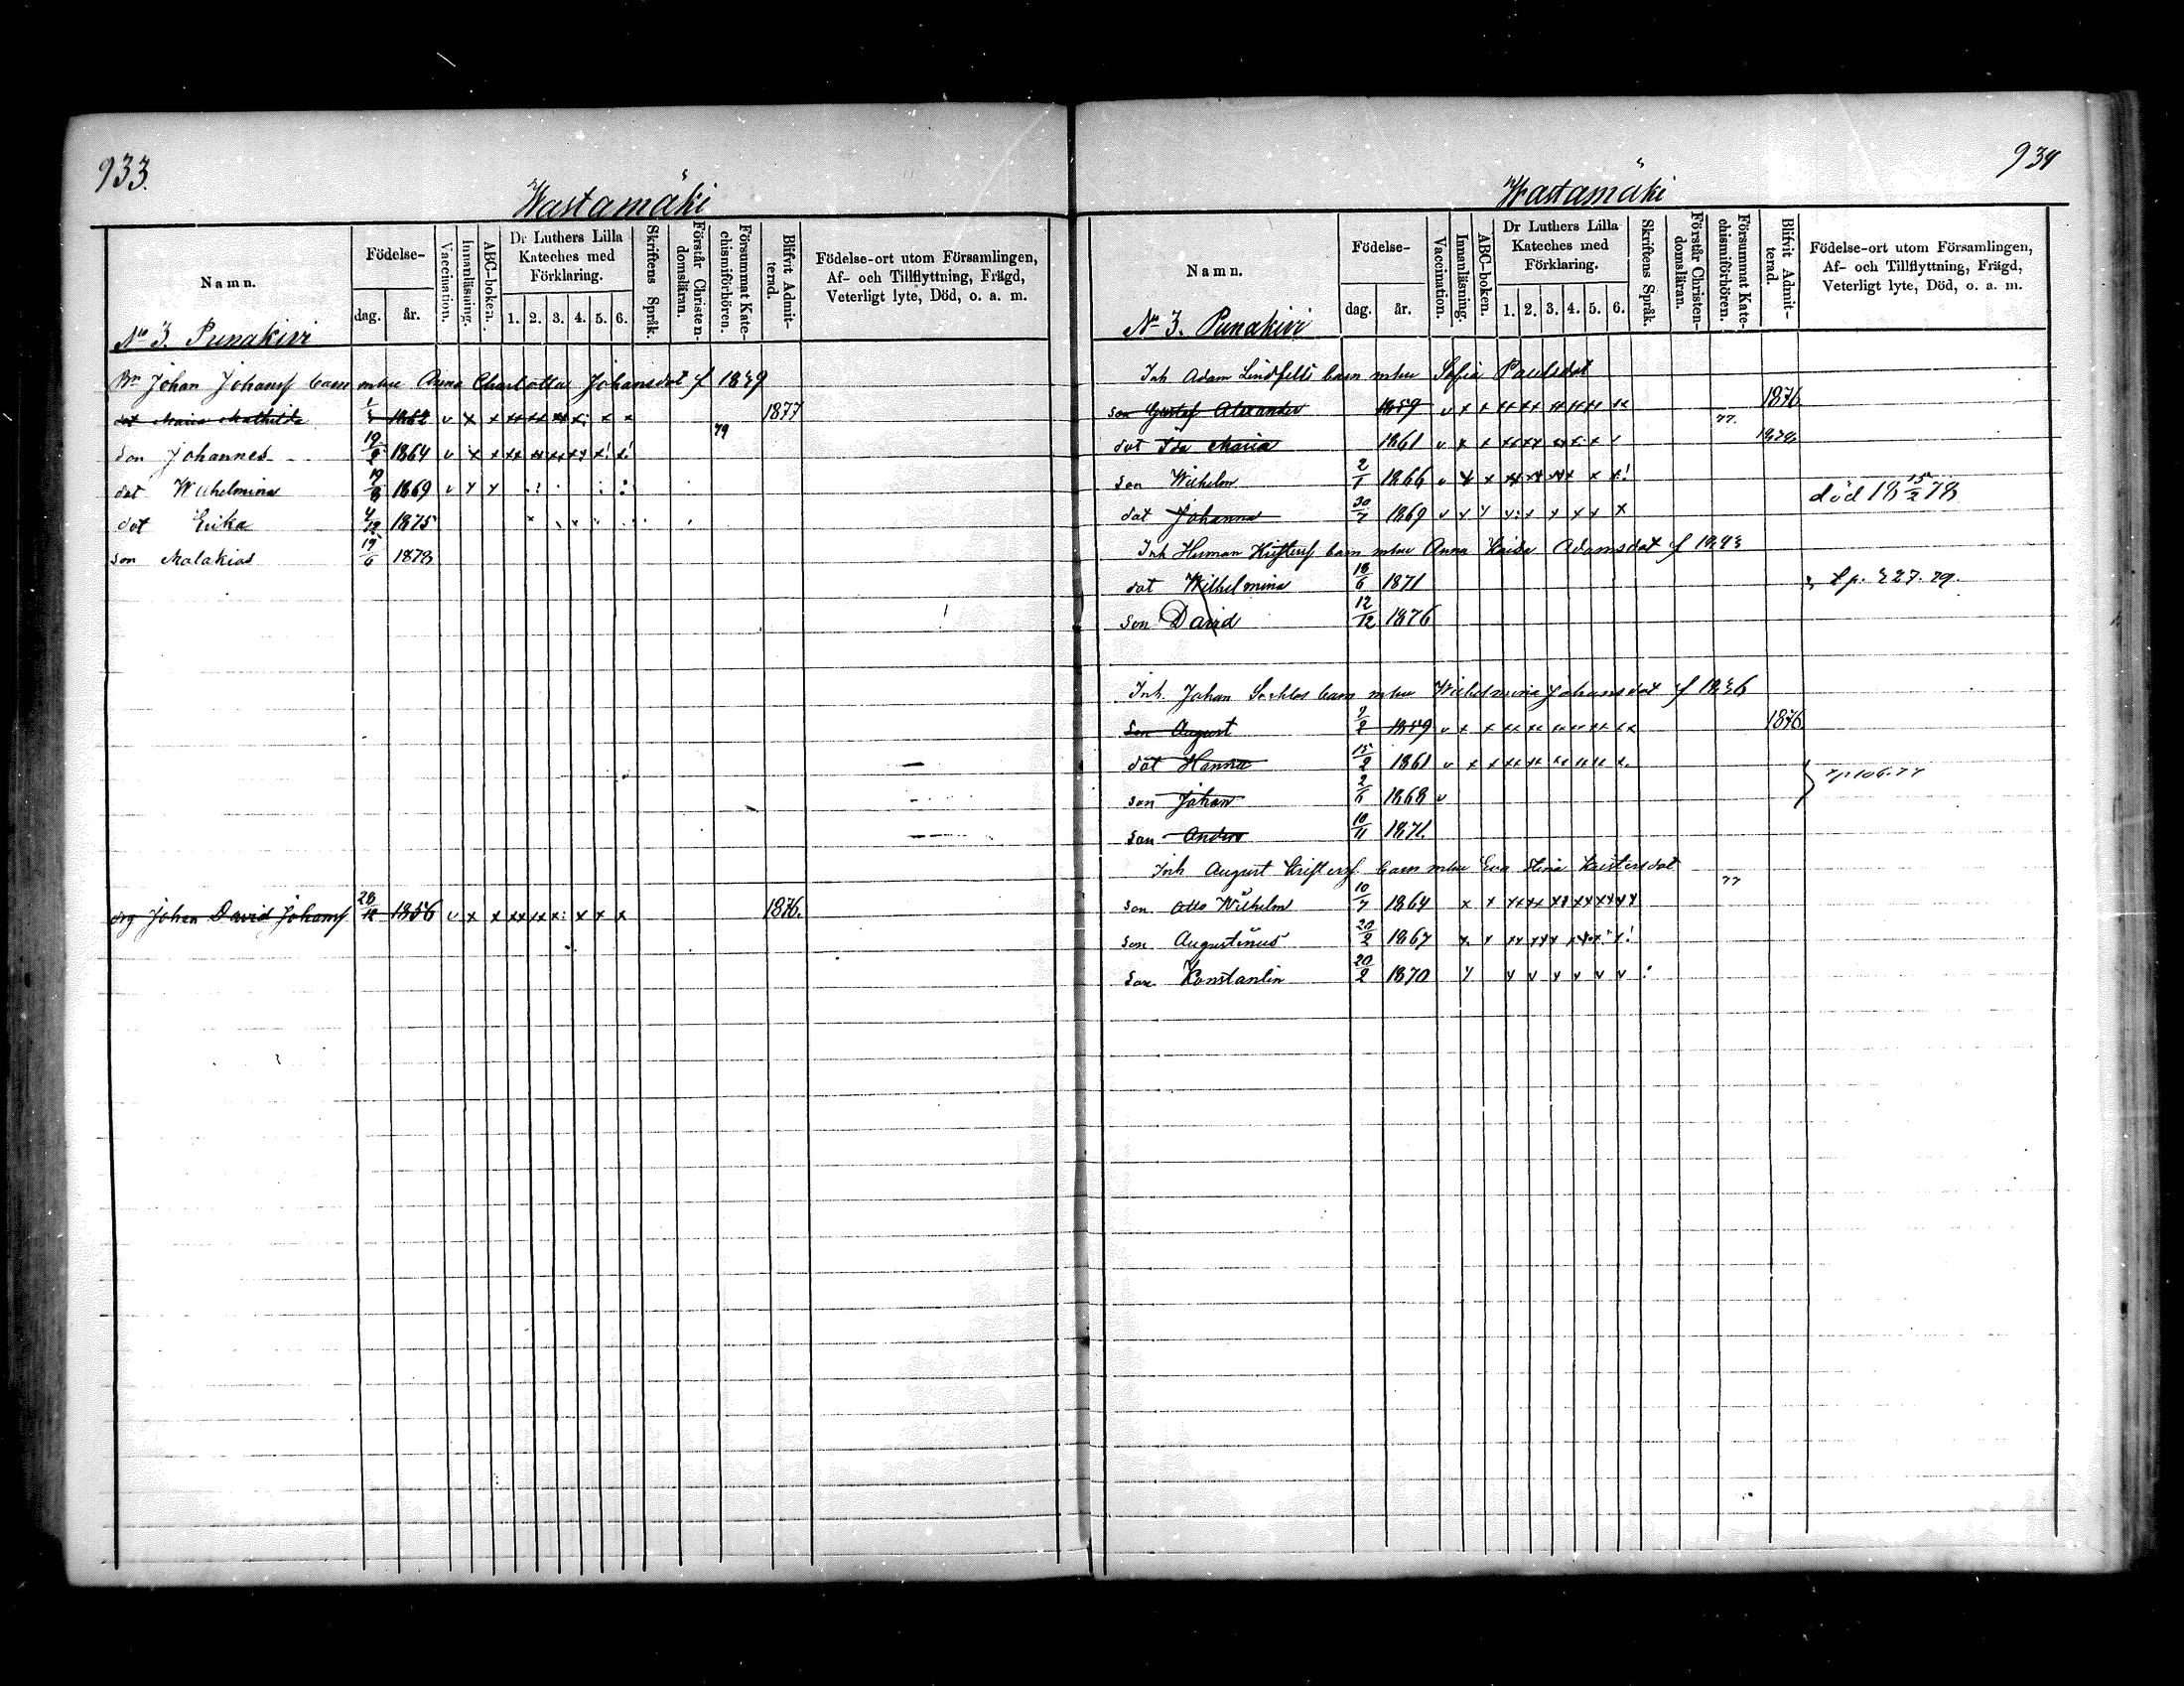 933.
Wastamäki
Namn.
Födelse-
dag.
år.
Vaccination.
Innanläsning.
ABC-boken.
Dr Luthers Lilla
Kateches med
Förklaring.
1. 2. 3. 4. 5. 6.
Skriftens Språk.
Förstår Christen-
domsläran.
Försummat Kate-
chismiförhören.
Blifvit Admit-
terad.
Födelse-ort utom Församlingen,
Af- och Tillflyttning, Frägd,
Veterligt lyte, Död, o. a. m.
No 3. Punakivi
Bn Johan Johansf barn mhu Anna Charlotta Johansdot f 1839
dot Maria Mathilda 1862 v x x xx xx xx x: x x 1877
79
son Johannes 19/2 1864 v x x xx xx xx xx x! x!
dot Wilhelmina 19/8 1869 v x x
dot Erika 4/12 1875
son Malakias 19/6 1878
drg Johan David Johansf 28/12 1856 v x x xx xx x: x x x 1876.
934
Wastamäki
Namn.
Födelse-
dag.
år.
Vaccination.
Innanläsning.
ABC-boken.
Dr Luthers Lilla
Kateches med
Förklaring.
1. 2. 3. 4. 5. 6.
Skriftens Språk.
Förstår Christen-
domsläran.
Försummat Kate-
chismiförhören.
Blifvit Admit-
terad.
Födelse-ort utom Församlingen,
Af- och Tillflyttning, Frägd,
Veterligt lyte, Död, o. a. m.
No 3. Punakivi
Inh Adam Lindfelts barn mhu Sofia Paulsdot
son Gustaf Alexander 1859 v x x xx xx xx xx xx xx 1876
77.
dot Ida Maria 1861 v x x xx xx xx x x 1878
son Wilhelm 2/1 1866 v x x xx xx xx x x!
dot Johanna 30/7 1869 v x x x: x x x x x död 18 15/2 78
Inh Herman barn mhu Anna Adamsdot f 1843
dot Wilhelmina 18/6 1871 t p. 327. 79.
son David 12/12 1876
Inh. Johan barn mhu Wilhelmina Johansdot f 1836
son August 1859 v x x xx xx xx xx xx xx 1876
dot Hanna 15/2 1861 v x x xx xx xx xx xx x.
son Johan 2/6 1868 v
son Anders 10/11 1871.
Inh August barn mhu Eva Stina
77
son Otto Wilhelm 10/7 1864 x x xx xx xx xx xx xx
son Augustinus 20/2 1867 x. x xx xx x
son Konstantin 20/2 1870 x x x x x x x